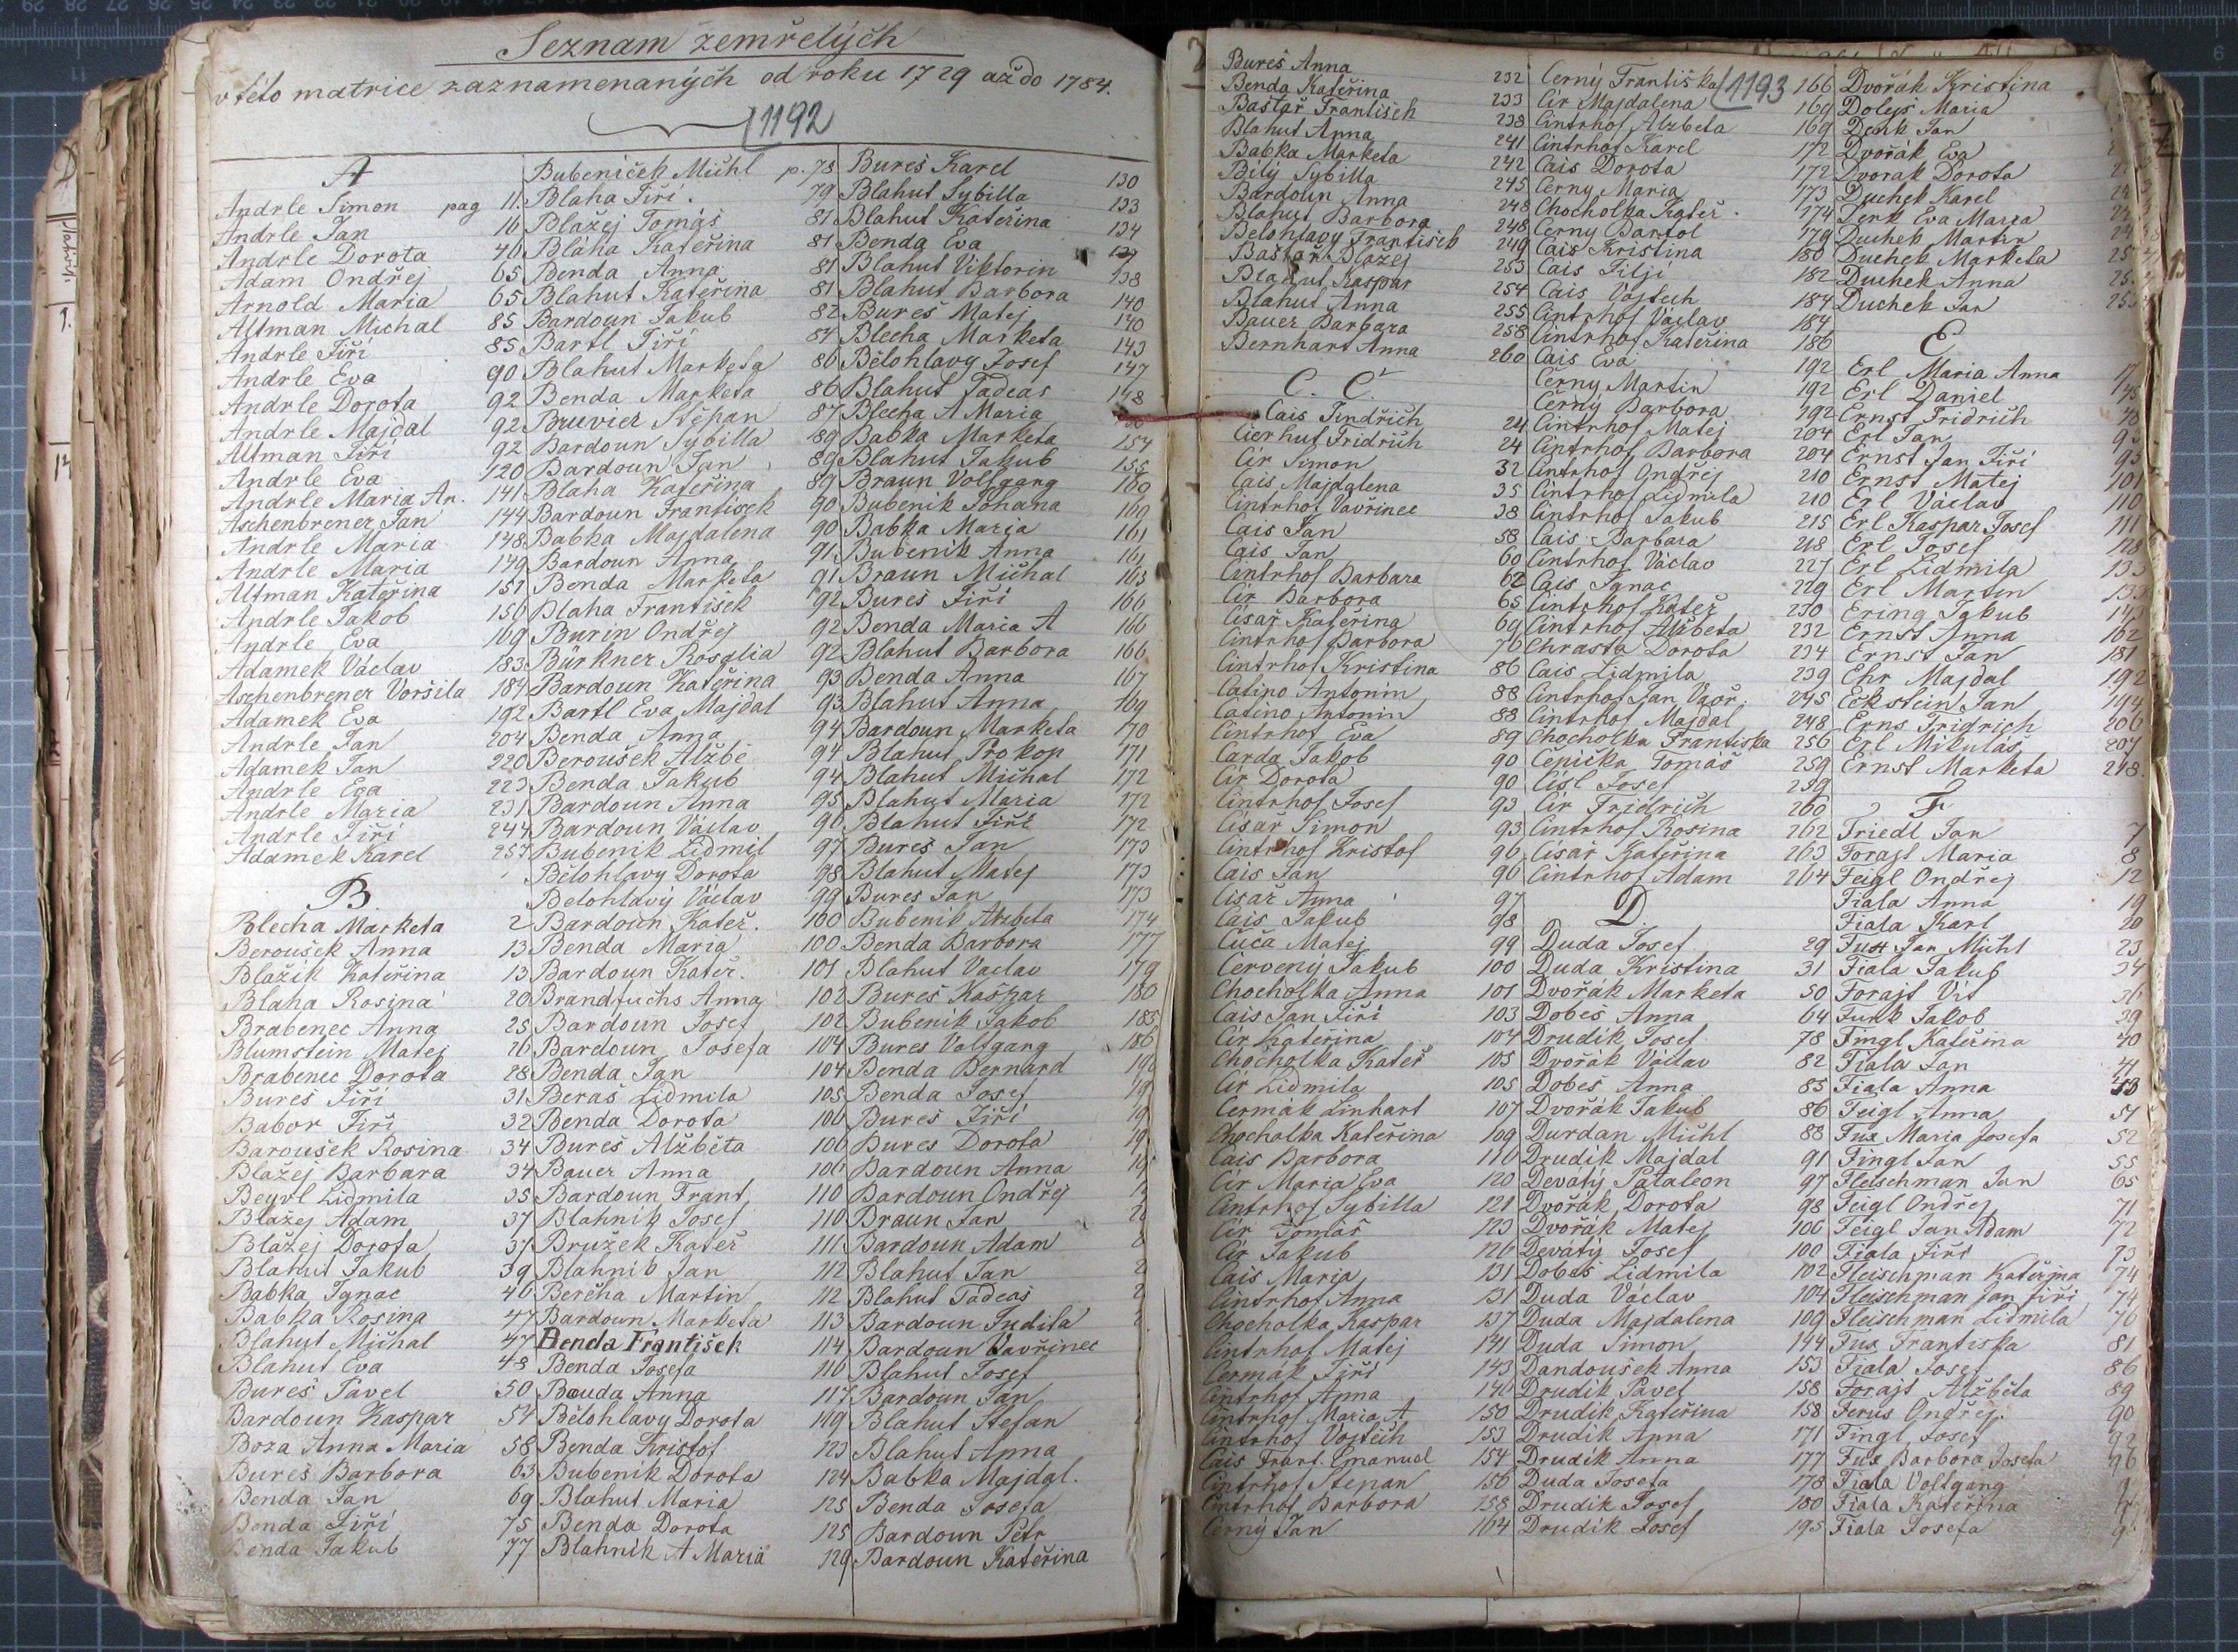 Seznam zemřelých
v této matrice zaznamenaných od roku 1729 až do 1784.
1192
A
Andrle Šimon pag 11.
Andrle Jan 16
Andrle Dorota 40
Adam Ondřej 65
Arnold Maria 65
Altman Michal 85
Andrle Jiří 85
Andrle Eva 90
Andrle Dorota 92
Andrle Majdal 92
Altman Jiří 92
Andrle Eva 120
Andrle Maria An. 141
Aschenbrener Jan 144
Andrle Maria 148
Andrle Maria 149
Altman Kateřina 151
Andrle Jakob 156
Andrle Eva 169
Adamek Václav 183
Aschenbrener Voršila 184
Adamek Eva 192
Andrle Jan 204
Adamek Jan 220
Andrle Eva 223
Andrle Maria 231
Andrle Jiří 244
Adamek Karel 257
B.
Blecha Marketa 2
Beroušek Anna 13
Blažik Kateřina 13
Blaha Rosina 20
Brabenec Anna 25
Blumstein Matej 26
Brabenec Dorota 28
Bureš Jiří 31
Babor Jiří 32
Baroušek Rosina 34
Blažej Barbara 34
Beyvl Lidmila 35
Blažej Adam 37
Blažej Dorota 37
Blahut Jakub 39
Babka Ignac 46
Babka Rosina 47
Blahut Michal 47
Blahut Eva 48
Bureš Pavel 50
Bardoun Kaspar 54
Boza Anna Maria 58
Bureš Barbora 63
Benda Jan 69
Benda Jiří 75
Benda Jakub 77
Bubeníček Michl p. 78
Blaha Jiří. 79
Blažej Tomáš 81
Bláha Kateřina 81
Benda Anna 81
Blahut Kateřina 81
Bardoun Jakub 82
Bartl Jiří 84
Blahut Marketa 86
Benda Marketa 86
Bruvier Štěpan 87
Bardoun Sybilla 89
Bardoun Jan 89
Blaha Kateřina 89
Bardoun Frantisek 90
Babka Majdalena 90
Bardoun Anna 91
Benda Marketa 91
Blaha František 92
Burin Ondřej 92
Bürkner Rosalia 92
Bardoun Kateřina 93
Bartl Eva Majdal 93
Benda Anna 94
Beroušek Alžbě 94
Benda Jakub 94
Bardoun Anna 95
Bardoun Václav 96
Bubenik Lidmil 97
Bělohlavy Dorota 98
Belohlavý Václav 99
Bardoun Kateř. 100
Benda Maria 100
Bardoun Kateř. 101
Brandfuchs Anna 102
Bardoun Josef 102
Bardoun Josefa 104
Benda Jan 104
Beraš Lidmila 105
Benda Dorota 106
Bureš Alžběta 106
Bauer Anna 106
Bardoun Frant. 110
Blahnik Josef 110
Bružek Kateř 111
Blahnik Jan 112
Bercha Martin 112
Bardoun Marketa 113
Benda František 114
Benda Josefa 116
Bouda Anna 117
Bělohlavy Dorota 119
Benda Kristof 123
Bubenik Dorota 124
Blahut Maria 125
Benda Dorota 125
Blahnik A Maria 129
Bureš Karel 130
Blahut Sybilla 133
Blahut Kateřina 134
Benda Eva
Blahut Viktorin 138
Blahut Barbora 140
Bureš Matej 140
Blecha Marketa 143
Bělohlavy Josef 147
Blahut Tadeas 148
Blecha A Maria
Babka Marketa 154
Blahut Jakub 155
Braun Volfgang 160
Bubenik Johana 160
Babka Maria 161
Bubenik Anna 161
Braun Michal 163
Bureš Jiří 166
Benda Maria A 166
Blahut Barbora 166
Benda Anna 167
Blahut Anna 169
Bardoun Marketa 170
Blahut Prokop 171
Blahut Michal 172
Blahut Maria 172
Blahut Jiří 172
Bureš Jan 173
Blahut Matej 173
Bureš Jan 173
Bubenik Alzbeta 174
Benda Barbora 177
Blahut Vaclav 179
Bureš Kašpar 180
Bubenik Jakob 185
Bures Volfgang 186
Benda Bernard
Benda Josef
Bureš Jiří
Bures Dorota
Bardoun Anna
Bardoun Ondřej
Braun Jan
Bardoun Adam
Blahut Jan
Blahut Tadeas
Bardoun Judita
Bardoun Vavřinec
Blahut Josef
Bardoun Jan
Blahut Stefan
Blahut Anna
Babka Majdal.
Benda Josefa
Bardoun Petr
Bardoun Kateřina
Bureš Anna 232
Benda Kateřina 233
Baštař František 238
Blahut Anna 241
Babka Marketa 242
Bilý Sybilla 245
Bardoun Anna 248
Blahut Barbora 248
Belohlavy František 249
Baštař Blažej 253
Blahut Kaspar 254
Blahut Anna 255
Bauer Barbara 258
Bernhart Anna 260
C. Č.
Cais Jindřich 24
Cierhut Fridrich 24
Cir Simon 32
Cais Majdalena 35
Cintrhof Vavřinec 38
Cais Jan 58
Cais Jan 60
Cintrhof Barbara 62
Cir Barbora 65
Cisař Kateřina 69
Cintrhof Barbora 76
Cintrhof Kristina 86
Catino Antonin 88
Catino Antonin 88
Cintrhof Eva 89
Carda Jakob 90
Cir Dorota 90
Cintrhof Josef 93
Cisař Simon 93
Cintrhof Kristof 96
Cais Jan 96
Cisař Anna 97
Cais Jakub 98
Čuča Matej 99
Červený Jakub 100
Chocholka Anna 101
Cais Jan Jiří 103
Cir Kateřina 104
Chocholka Kateř 105
Cir Lidmila 105
Čermák Linhart 107
Chocholka Kateřina 109
Cais Barbora 110
Cir Maria Eva 120
Cintrhof Sybilla 121
Cir Tomáš 123
Cir Jakub 126
Cais Maria 131
Cintrhof Anna 131
Chocholka Kaspar 137
Cintrhof Matej 141
Čermák Jiří 143
Cintrhof Anna 146
Cintrhof Maria A 150
Cintrhof Vojtěch 153
Cais Frant. Emanuel 154
Cintrhof Štepan 156
Cintrhof Barbora 158
Černý Jan 164
Černý Františka 166
1193
Cir Majdalena 169
Cintrhof Alzbeta 169
Cintrhof Karel 172
Cais Dorota 172
Černy Maria 173
Chocholka Kateř. 174
Černy Bartol 179
Cais Kristina 180
Cais Filji 182
Cais Vojtech 184
Cintrhof Václav 184
Cintrhof Kateřina 186
Cais Eva 192
Černy Martin 192
Černý Barbora 192
Cintrhof Matej 204
Cintrhof Barbora 204
Cintrhof Ondřej 210
Cintrhof Lidmila 210
Cintrhof Jakub 215
Cais Barbara 218
Cintrhof Václav 227
Cais Ignac 229
Cintrhof Kateř 230
Cintrhof Alžbeta 232
Chrasta Dorota 234
Cais Lidmila 239
Cintrhof Jan Vavř. 245
Cintrhof Majdal 248
Chocholka Frantiska 256
Čepička Tomáš 259
Cisl Josef 259
Cir Fridrich 260
Cintrhof Rosina 262
Cisař Kateřina 263
Cintrhof Adam 264
D.
Duda Josef 29
Duda Kristina 31
Dvořák Marketa 50
Dobeš Anna 64
Drudik Josef 78
Dvořák Václav 82
Dobeš Anna 85
Dvořák Jakub 86
Durdan Michl 88
Drudik Majdal 91
Devatý Pataleon 97
Dvořák Dorota 98
Dvořák Matej 100
Devatý Josef 100
Dobeš Lidmila 102
Duda Václav 104
Duda Majdalena 109
Duda Simon 144
Dandoušek Anna 153
Drudik Pavel 158
Drudik Kateřina 158
Drudik Anna 171
Drudik Anna 177
Duda Josefa 178
Drudik Josef 180
Drudik Josef 195
Dvořák Kristina
Dolejš Maria
Denk Jan
Dvořák Eva
Dvorak Dorota
Duchek Karel
Denk Eva Maria
Duchek Martin
Duchek Marketa
Duchek Anna
Duchek Jan
E
Erl Maria Anna
Erl Daniel
Ernst Fridrich
Erl Jan
Ernst Jan Jiří
Ernst Matej 101
Erl Václav 110
Erl Kaspar Josef 111
Erl Josef 128
Erl Lidmila 133
Erl Martin
Ering Jakub
Ernst Anna 162
Ernst Jan 181
Ehr Majdal 192
Eckstein Jan 194
Erns Fridrich 206
Erl Mikuláš 207
Ernst Marketa 218.
F
Friedl Jan 7
Forajt Maria 8
Feigl Ondřej 12
Fiala Anna 19
Fiala Karl 20
Fux Jan Michl 23
Fiala Jakub 34
Forajt Vít 36
Funk Jakob 39
Fingl Kateřina 40
Fiala Jan 41
Fiala Anna
Feigl Anna 51
Fux Maria Josefa 52
Fingl Jan 55
Fleischman Jan 65
Feigl Ondřej 71
Feigl Jan Adam 72
Fiala Jiří 73
Fleischman Kateřina 74
Fleischman Jan Jiří 74
Fleischman Lidmila 76
Fux Frantiska 81
Fiala Josef 86
Forajt Alžběta 89
Ferus Ondřej. 90
Fingl Josef 92
Fux Barbora Josefa 96
Fiala Volfgang
Fiala Kateřina
Fiala Josefa